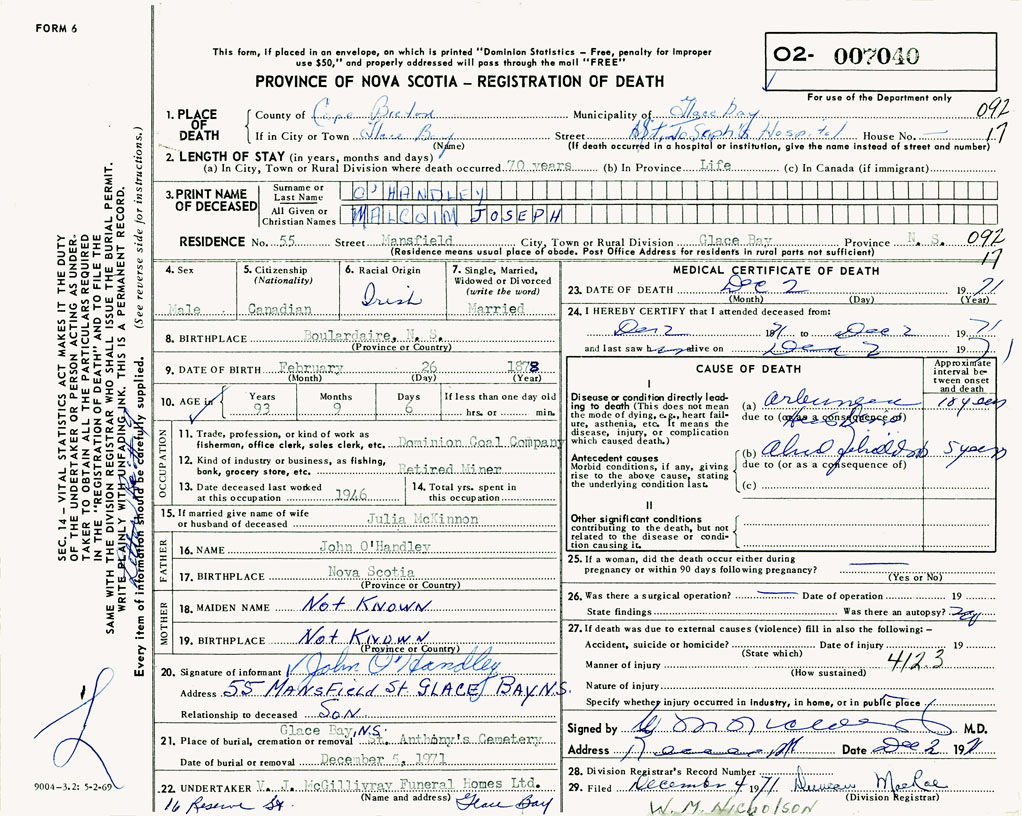 FORM 6
This form, if placed in an envelope, on which is printed "Dominion Statistics – Free, penalty for improper
use $50," and properly addressed will pass through the mail "FREE"
PROVINCE OF NOVA SCOTIA – REGISTRATION OF DEATH
O2- 007040
For use of the Department only
1. PLACE OF DEATH
County of Cape Breton Municipality of Glace Bay 092
If in City or Town Glace Bay Street St. Joseph's Hospital House No. — 17
(Name) (If death occurred in a hospital or institution, give the name instead of street and number)
2. LENGTH OF STAY (in years, months and days)
(a) In City, Town or Rural Division where death occurred 70 years (b) In Province Life (c) In Canada (if immigrant)
3. PRINT NAME OF DECEASED
Surname or Last Name O'HANDLEY
All Given or Christian Names MALCOLM JOSEPH
RESIDENCE No. 55 Street Mansfield City, Town or Rural Division Glace Bay Province N. S. 092
(Residence means usual place of abode. Post Office Address for residents in rural parts not sufficient) 17
4. Sex
Male
5. Citizenship
(Nationality)
Canadian
6. Racial Origin
Irish
7. Single, Married,
Widowed or Divorced
(write the word)
Married
8. BIRTHPLACE Boulardaire, N. S.
(Province or Country)
9. DATE OF BIRTH February 26 1878
(Month) (Day) (Year)
10. AGE in
Years Months Days If less than one day old
93 9 6 hrs. or min.
OCCUPATION
11. Trade, profession, or kind of work as
fisherman, office clerk, sales clerk, etc. Dominion Coal Company
12. Kind of industry or business, as fishing,
bank, grocery store, etc. Retired Miner
13. Date deceased last worked
at this occupation 1946
14. Total yrs. spent in
this occupation
15. If married give name of wife
or husband of deceased Julia McKinnon
FATHER
16. NAME John O'Handley
17. BIRTHPLACE Nova Scotia
(Province or Country)
MOTHER
18. MAIDEN NAME Not Known
19. BIRTHPLACE Not Known
(Province or Country)
20. Signature of informant John O'Handley
Address 55 Mansfield St GLACE BAY N.S.
Relationship to deceased Son
Glace Bay, N.S.
21. Place of burial, cremation or removal St. Anthony's Cemetery
Date of burial or removal December 5, 1971
22. UNDERTAKER V. J. McGillivray Funeral Homes Ltd.
(Name and address)
16 Reserve St. Glace Bay
MEDICAL CERTIFICATE OF DEATH
23. DATE OF DEATH Dec 2 1971
(Month) (Day) (Year)
24. I HEREBY CERTIFY that I attended deceased from:
71 to Dec 2 1971
and last saw alive on 2 1971
CAUSE OF DEATH
Approximate
interval be-
tween onset
and death
I
Disease or condition directly lead-
ing to death (This does not
mean the mode of dying, e.g., heart fail-
ure, asthenia, etc. It means the
disease, injury, or complication
which caused death.)
(a) 10 years
due to (or as a consequence of)
Antecedent causes
Morbid conditions, if any, giving
rise to the above cause, stating
the underlying condition last.
(b) 5 years
due to (or as a consequence of)
(c)
II
Other significant conditions
contributing to the death, but not
related to the disease or condi-
tion causing it.
25. If a woman, did the death occur either during
pregnancy or within 90 days following pregnancy?
(Yes or No)
26. Was there a surgical operation? Date of operation 19
State findings Was there an autopsy?
27. If death was due to external causes (violence) fill in also the following: –
Accident, suicide or homicide? Date of injury 19
(State which)
Manner of injury 412.3
(How sustained)
Nature of injury
Specify whether injury occurred in Industry, in home, or in public place
Signed by M.D.
Address Date Dec 2 1971
28. Division Registrar's Record Number
29. Filed December 4 1971 Duncan MacRae
(Division Registrar)
W. M. NICHOLSON
SEC. 14 – VITAL STATISTICS ACT MAKES IT THE DUTY
OF THE UNDERTAKER OR PERSON ACTING AS UNDER-
TAKER TO OBTAIN ALL THE PARTICULARS REQUIRED
IN THE "REGISTRATION OF DEATH" AND TO FILE THE
SAME WITH THE DIVISION REGISTRAR WHO SHALL ISSUE THE BURIAL PERMIT.
WRITE PLAINLY WITH UNFADING INK. THIS IS A PERMANENT RECORD.
Every item of information should be carefully supplied. (See reverse side for instructions.)
9004-3.2: 5-2-69